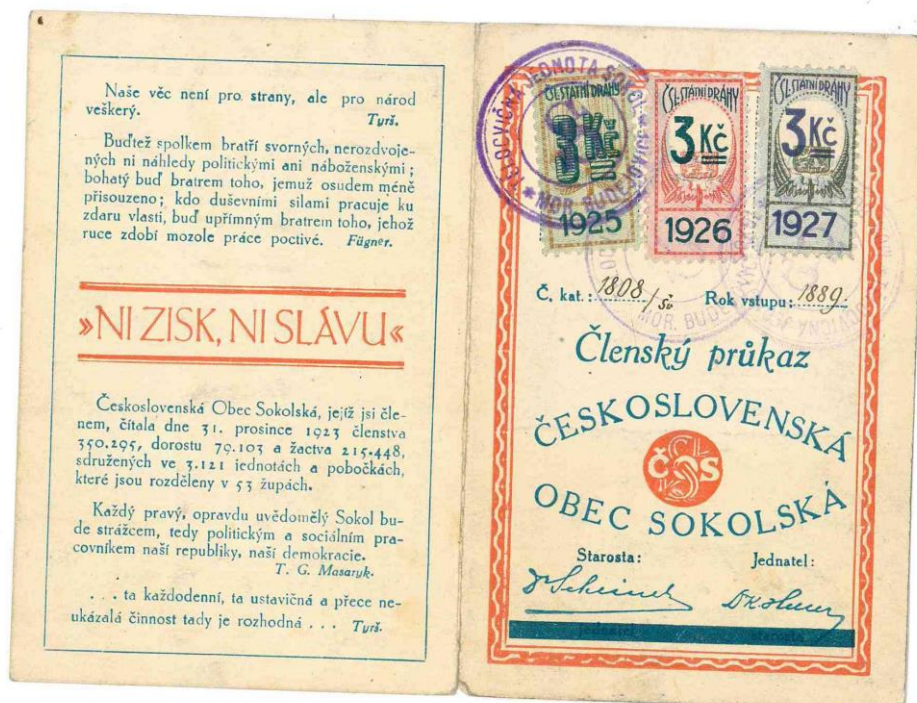 Naše věc není pro strany, ale pro národ
veškerý.
Tyrš.
Buďtež spolkem bratří svorných, nerozdvoje-
ných ni náhledy politickými ani náboženskými;
bohatý buď bratrem toho, jemuž osudem méně
přisouzeno; kdo duševními silami pracuje ku
zdaru vlasti, buď upřímným bratrem toho, jehož
ruce zdobí mozole práce poctivé. Fügner.
»NI ZISK, NI SLÁVU«
Československá Obec Sokolská, jejíž jsi čle-
nem, čítala dne 31. prosince 1923 členstva
350.295, dorostu 79.103 a žactva 215.448,
sdružených ve 3.121 jednotách a pobočkách,
které jsou rozděleny v 53 župách.
Každý pravý, opravdu uvědomělý Sokol bu-
de strážcem, tedy politickým a sociálním pra-
covníkem naší republiky, naší demokracie.
T. G. Masaryk.
. . . ta každodenní, ta ustavičná a přece ne-
ukázalá činnost tady je rozhodná . . . Tyrš.
TĚLOCVIČNÁ JEDNOTA SOKOL
MOR. BUDĚJOVICE
ČSL. STÁTNÍ DRÁHY
3 Kč
1925
ČSL. STÁTNÍ DRÁHY
3 Kč
1926
ČSL. STÁTNÍ DRÁHY
3 Kč
1927
Č. kat.: 1808/ Rok vstupu: 1889.
MOR. BUDĚJOVICE
Členský průkaz
ČESKOSLOVENSKÁ
ČOS
OBEC SOKOLSKÁ
Starosta: Jednatel:
jednatel starosta